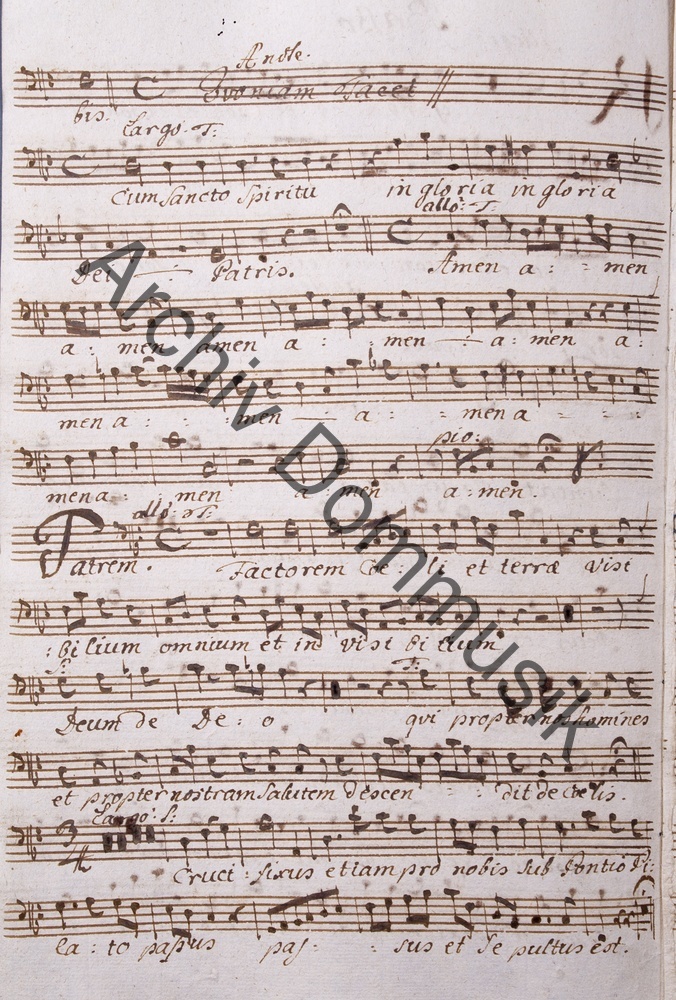 Andte.
Quoniam Tacet
bis.
Largo. T:
Cum Sancto Spiritu in gloria in gloria
allo: T:
Dei Patris. Amen a: men
a: men amen a: men a: men a:
men a: men a: men a
men a: men a: men a: men.
pio:
allo: T:
Patrem. Factorem Coe: li et terrae visi
: bi lium omnium et in visi bi lium
Deum de De: o qui propter nos homines
et propter nostram Salutem descen dit de Coelis.
Largo: S:
3/4
Cruci: fixus etiam pro nobis sub Pontio Pi:
la: to passus pas: sus et Sepultus est.
Archiv Dommusik